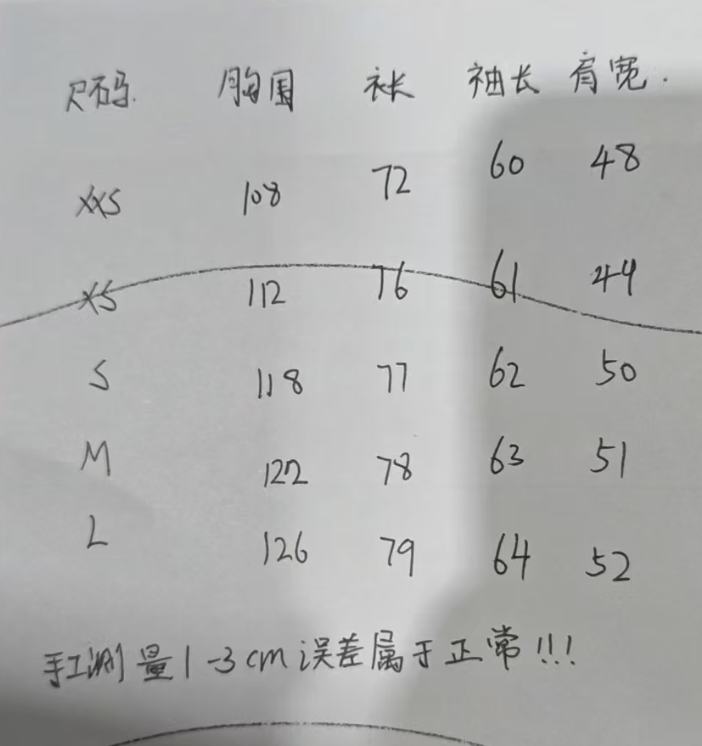 尺码 胸围 衣长 袖长 肩宽.
XXS 108 72 60 48
XS 112 76 61 44
S 118 77 62 50
M 122 78 63 51
L 126 79 64 52
手工测量1-3cm误差属于正常!!!